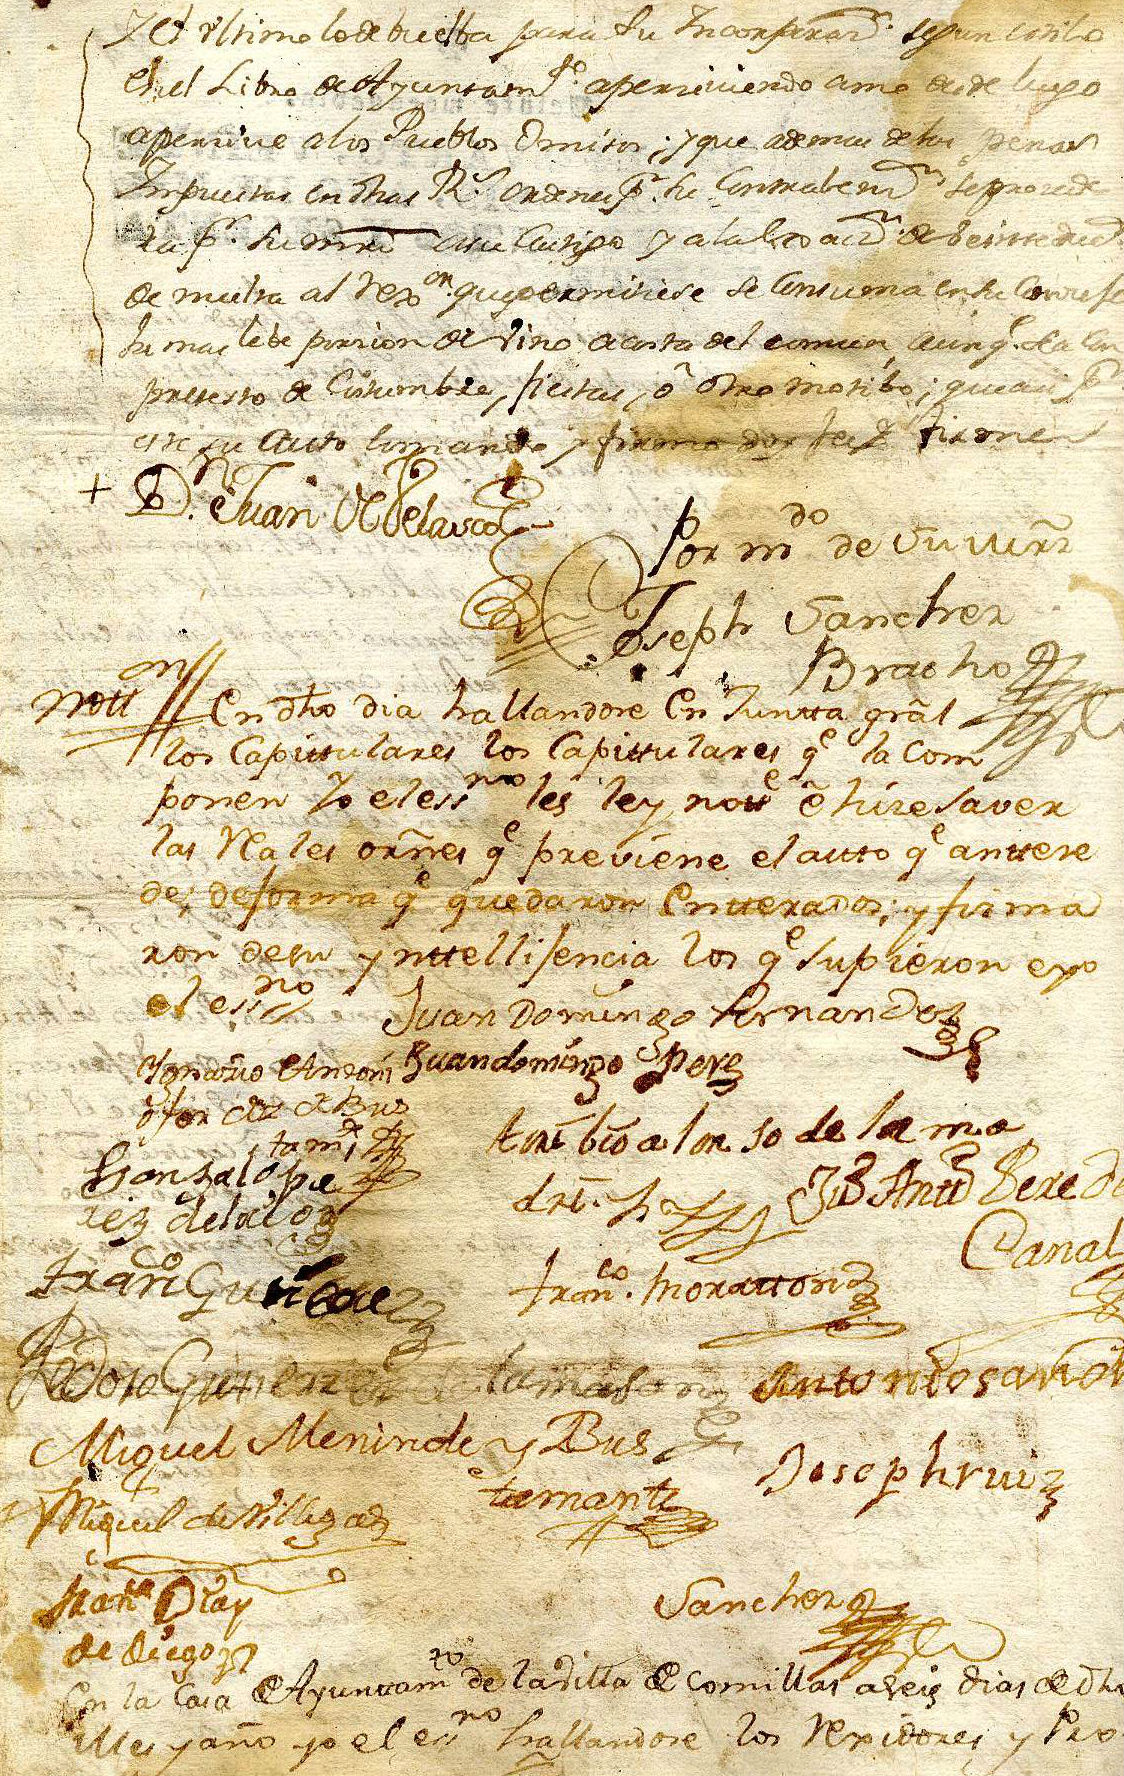 Y el ultimo lo debuelba para su Incorporaz.n segun estilo
en el Libro de Ayuntam.to aperciviendo como desde luego
apercive a los Pueblos Omisos; y que ademas de las penas
Impuestas en dhas R.s ordenes p.r su Contrabenz.n se procede
ra p.r su mrd a su Castigo y a la
de multa al Rex.or que permitiese se Consuma en su
porcion de vino a costa del comun, aunq.e sea con
pretexto de Costumbre, fiestas, ô otro motibo; que asi p.r
este su Auto lo mando y firmo doy fee
+ D.n Juan de Velasco
Por m.do de su mrd
Joseph Sanchez
Bracho
nott.on En dho dia hallandose En Juntta gral
los Capittulares los Capittulares q.e la Com
ponen Yo el ess.no les ley nott.e é hize saver
las Reales orñes q.e previene el autto q.e anttece
de; de forma q.e quedaron Entterados; y firma
ron de su ynttelisencia los q.e supieron eyo
el ess.no Juan Domingo Fernandez
Ignacio Antoni Juan domingo Perz
o fernz de Bus
tam.te toribio alonso de la ma
Gonzalo pe drid JB Antt.o Pere de
rez Canal
fran.co Gutierrez fran.co Morantton
Pedro Gutierrez de lamason Antonio
Miguel Meninde y Bus
tamante Joseph ruiz
Miguel de Villegas
Diaz
de diego Sanchez
En la Casa de Ayuntam.to de la Villa de Comillas a seis dias de dho
Mes y año yo el ess.no hallandose los Rexidores y Pro